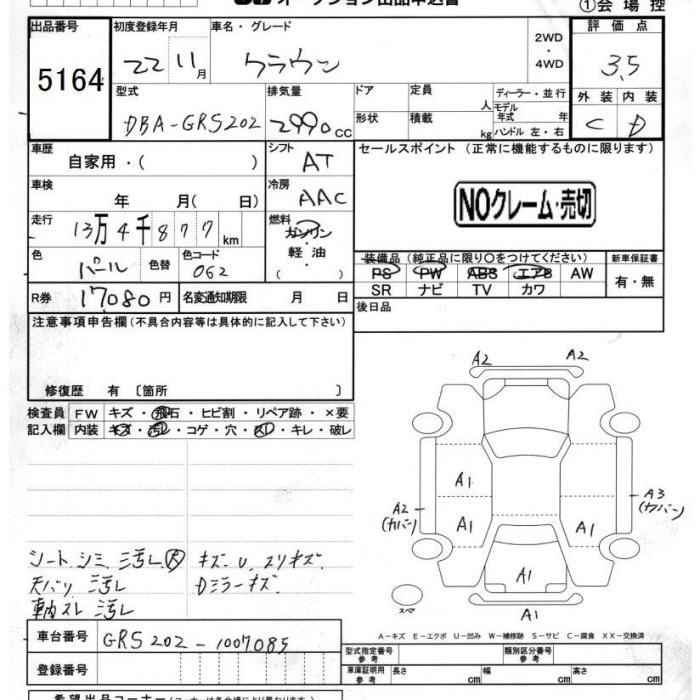 オークション出品申込書 ①会場控
出品番号 初度登録年月 車名・グレード 2WD・4WD 評価点
5164 22 11月 クラウン 3.5
型式 排気量 ドア 定員 人 ディーラー・並行 外装 内装
DBA-GRS202 2990cc 形状 積載 kg モデル年式 年 ハンドル 左・右 C D
車歴 自家用・( ) シフト AT セールスポイント (正常に機能するものに限ります)
車検 年 月( 日) 冷房 AAC NOクレーム・売切
走行 13万4千877km 燃料 ガソリン 軽油 ( )
装備品 (純正品に限り〇をつけてください) 新車保証書
色 パール 色替 色コード 062 PS PW ABS エアB AW 有・無
SR ナビ TV カワ
R券 17080円 名変通知期限 月 日 後日品
注意事項申告欄 (不具合内容等は具体的に記入して下さい)
修復歴 有 〔箇所 〕
検査員 FW キズ・飛石・ヒビ割・リペア跡・×要
記入欄 内装 キズ・汚レ・コゲ・穴・スレ・キレ・破レ
A2 A2
A1
A2 (カバー) A1 A1 A3 (カバー)
A1
スペア A1
シート シミ 汚レ 大 キズ U スリキズ
天バリ 汚レ Dミラーキズ
車内スレ 汚レ
A-キズ E-エクボ U-凹み W-補修跡 S-サビ C-腐食 XX-交換済
車台番号 GRS202-1007085
型式指定番号 参考 類別区分番号 参考
登録番号 車庫証明用 参考 長さ cm 幅 cm 高さ cm
希望出品コーナー